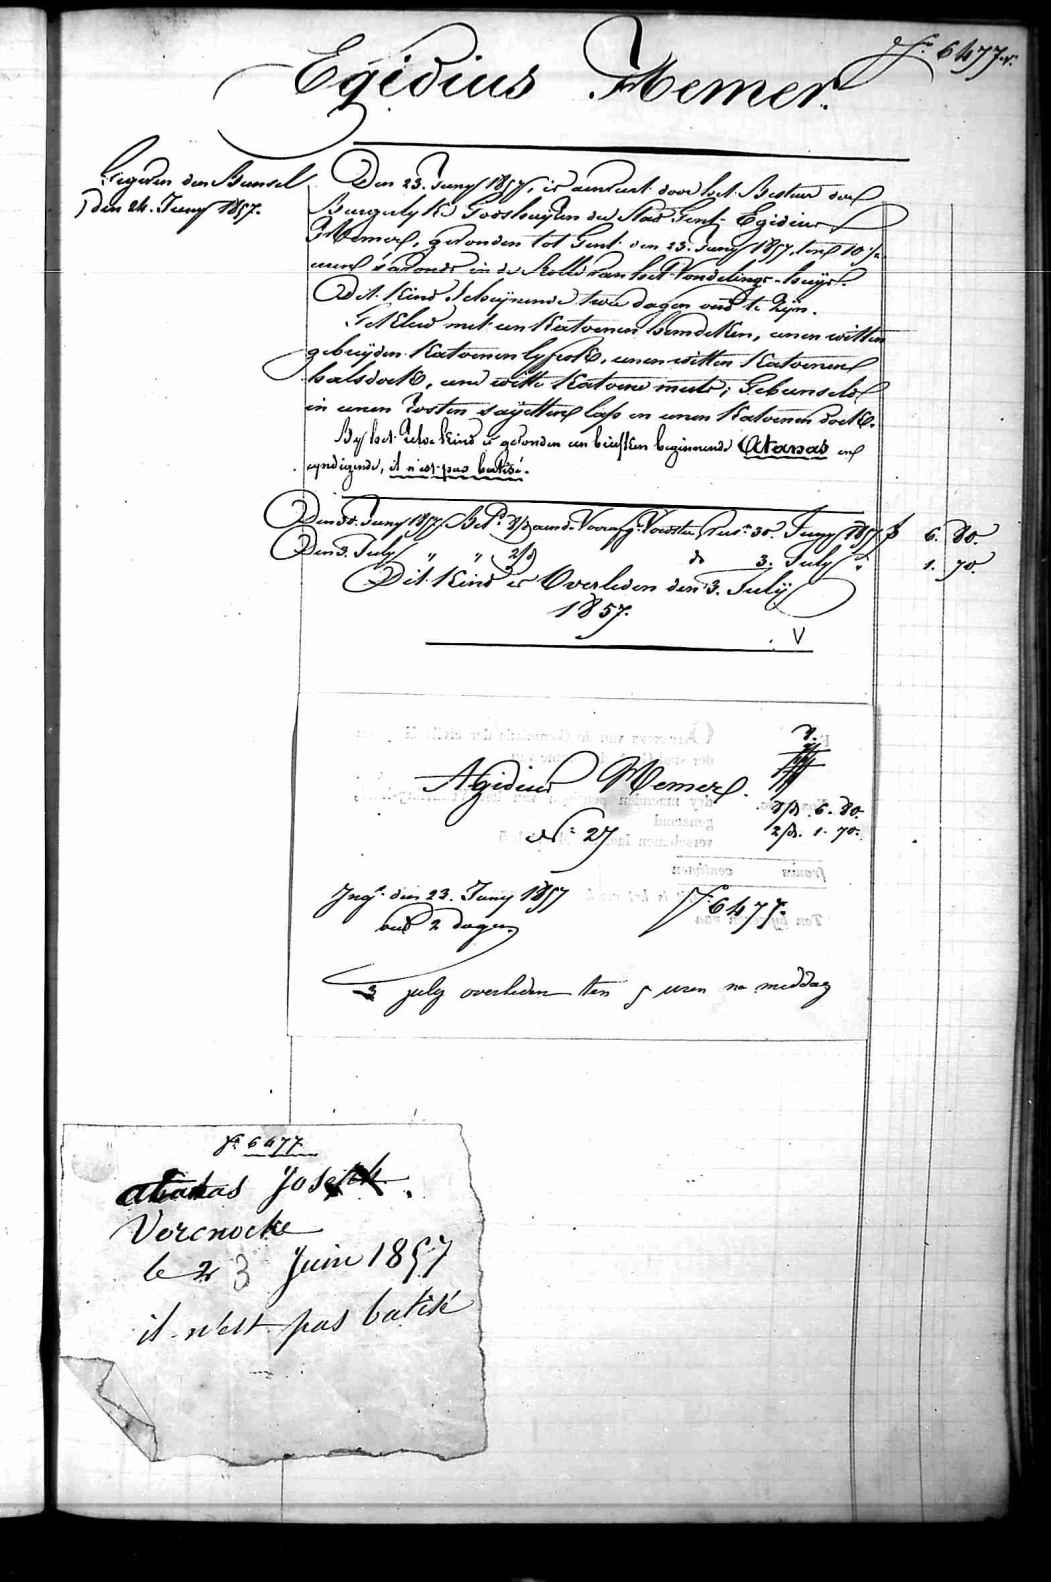 N.º 6477.
Egidius Memer.
Gegeven den Bunsel
den 24. Juny 1857.
Den 23. Juny 1857, is aenveert door het Bestuer der
Burgelyke Godshuyzen der Stad Gent, Egidius
Memer, gevonden tot Gent den 23. Juny 1857, ten 10 ½
uren s'avonds in de Rolle van het Vondelings-huys.
Dit Kind schynende twee dagen oud te zyn.
Gekleed met een Katoenen hemdeken, eenen witten
gebreyden Katoenen lyfrok, eenen witten Katoenen
halsdoek, eene witte Katoene muts; Gebunseld
in eenen rosten sayetten lap en eenen Katoenen doek.
By het zelve kind is gevonden een briefken beginnende Atanas en
eyndigende, il n'est pas batisé.
Den 30. Juny 1857 8/d 30. Juny 1857 6. 80.
Den 3. July " " 2/d do 3. July 1. 70.
Dit Kind is Overleden den 3. July
1857.
V
8.
Egidius Memer.
8/d. 6. 80.
Nº 27
2/d. 1. 70.
Ings. den 23. Juny 1857
Nº 6477.
oud 2 dagen
3 july overleden ten 5 uren na middag
Nº 6477
atanas Joseph
Vercnocke
le 23 Juin 1857
il n'est pas batisé